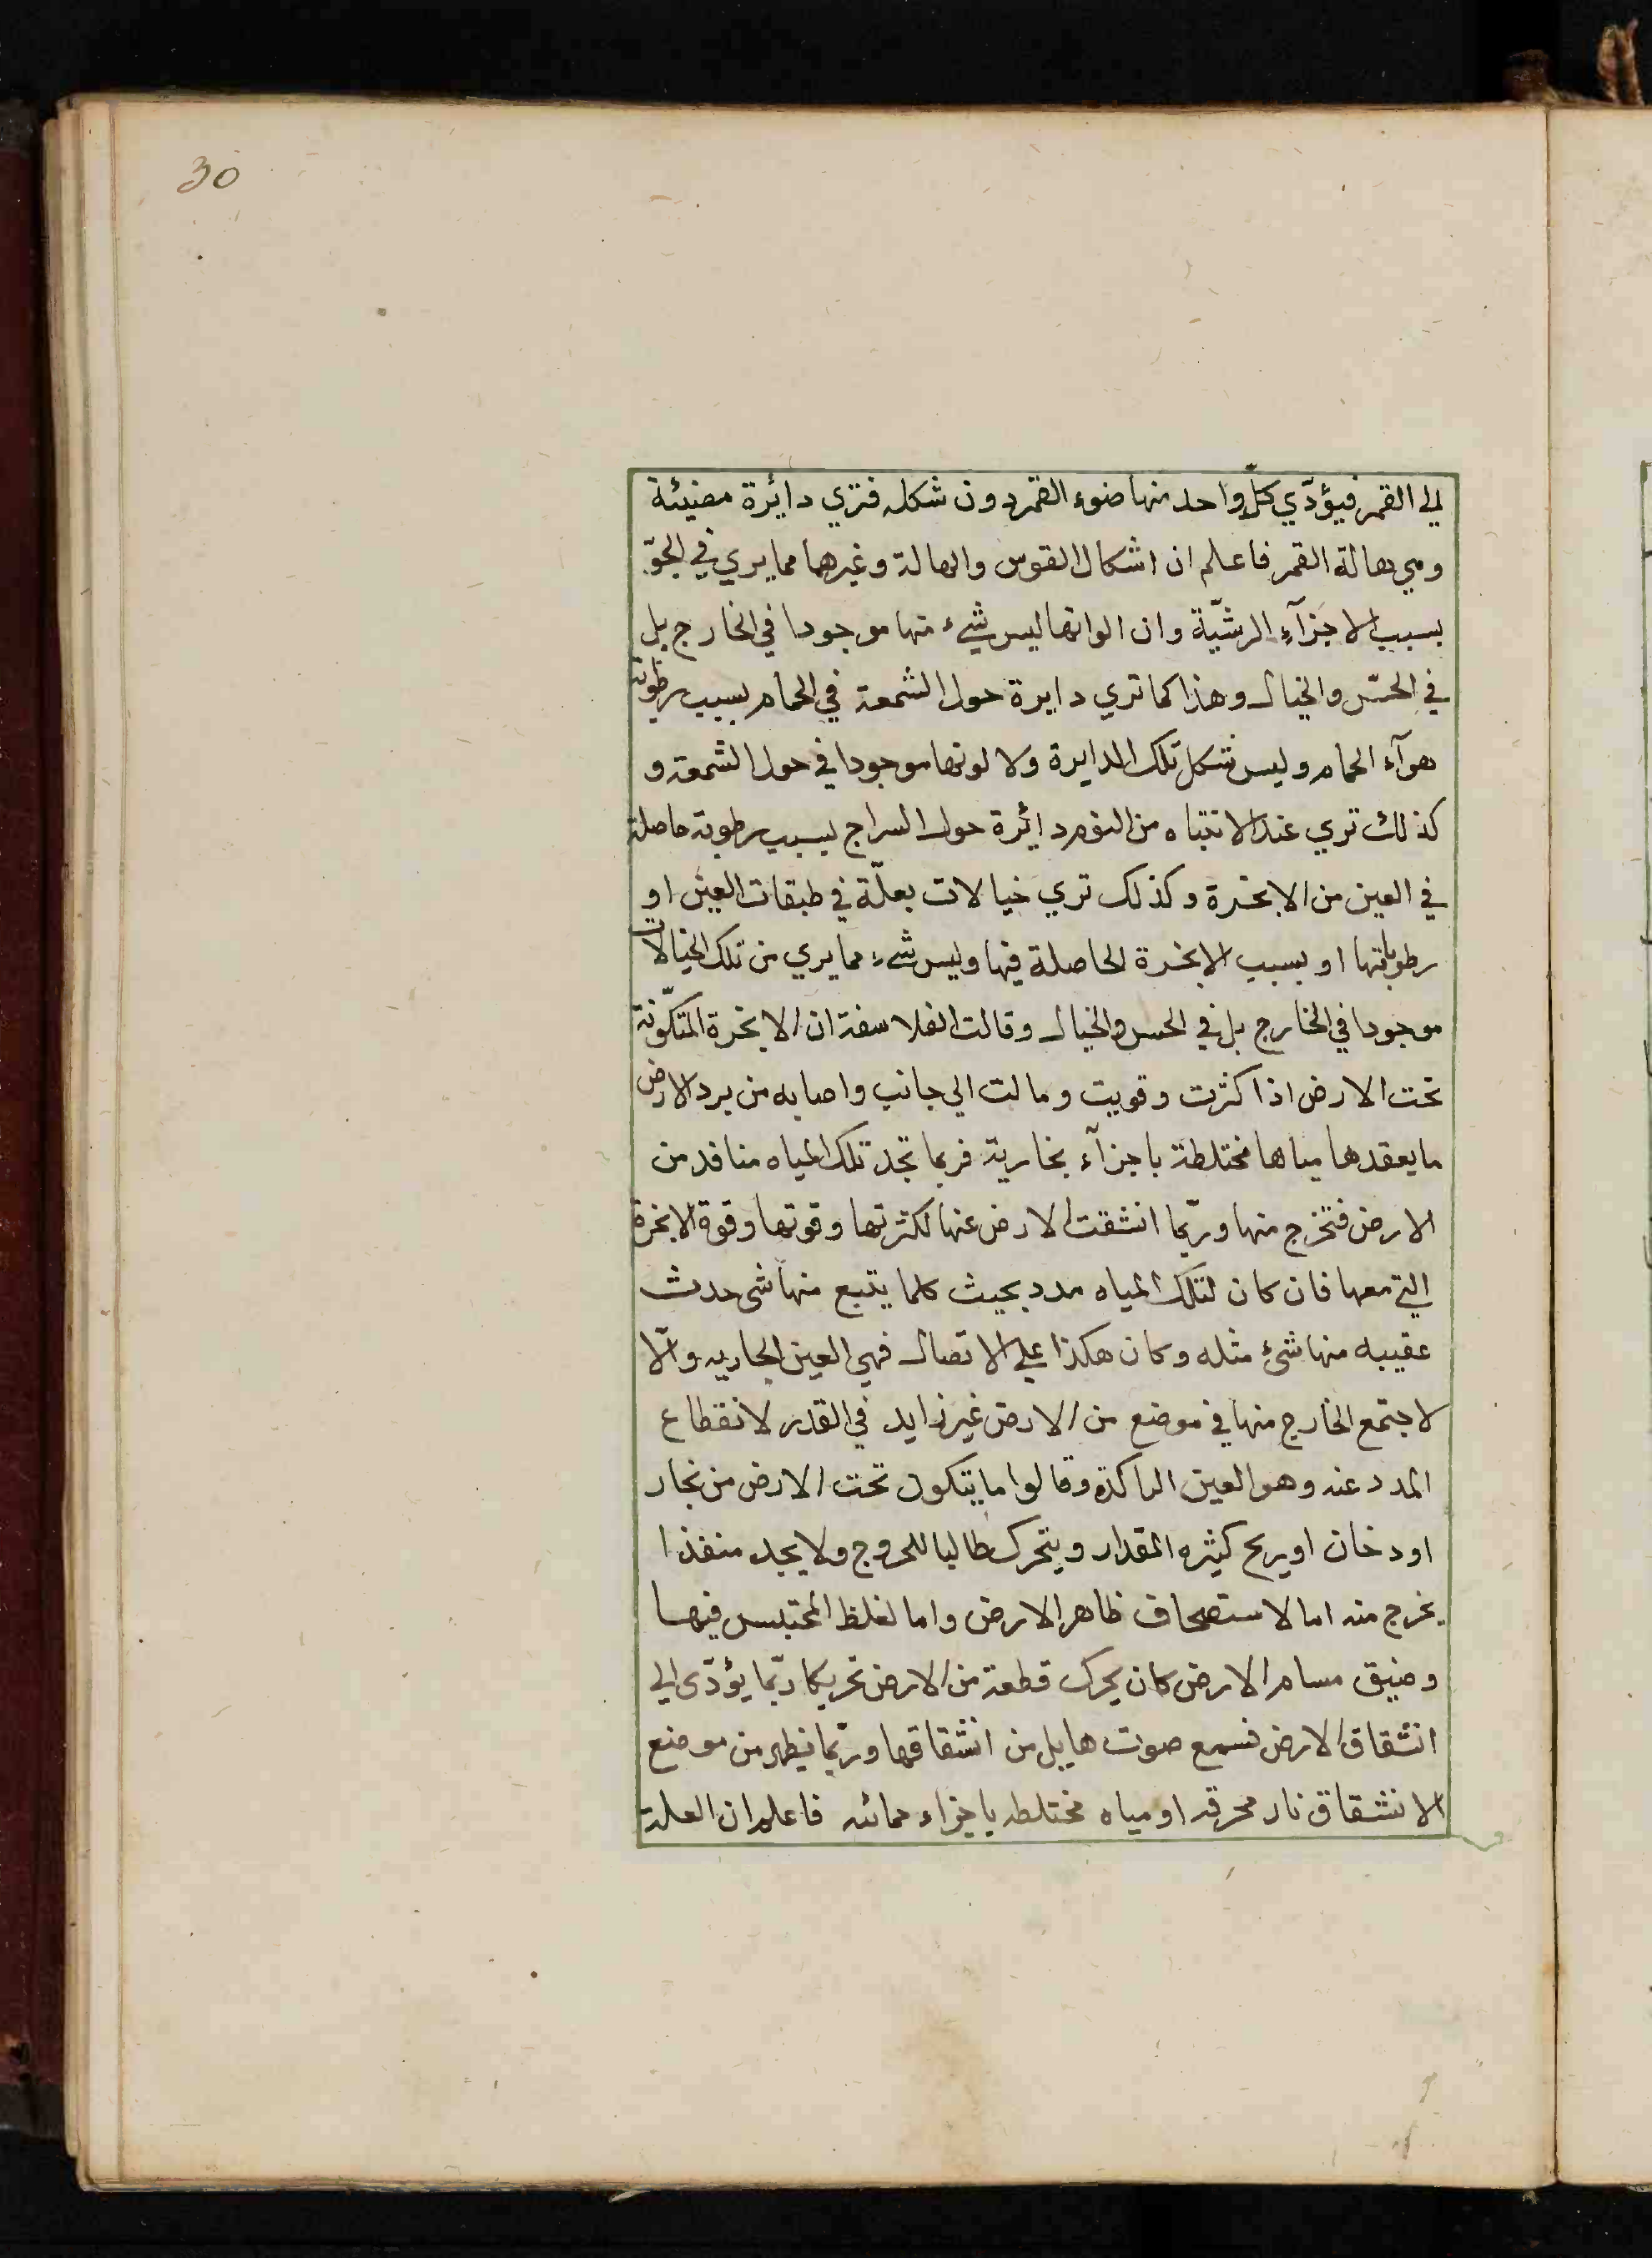 30
الي القمر فيؤدّي كلّ واحد منها ضوء القمر دون شكله فتري دائرة مضيئة
وهي هالة القمر فاعلم ان اشكال القوس والهالة وغيرها مما يري في الجوّ
بسبب الاجزآء الرشيّة وان الوانها ليس شيء منها موجودا في الخارج بل
في الحسّ والخيال وهذا كما تري دايرة حول الشمعة في الحمام بسبب رطوبة
هوآء الحمام وليس شكل تلك الدايرة ولا لونها موجودا في حول الشمعة و
كذلك تري عند الانتباه من النوم دائرة حول السراج بسبب رطوبة حاصلة
في العين من الابخرة وكذلك تري خيالات بعلّة في طبقات العين او
رطوباتها او بسبب الابخرة الحاصلة فيها وليس شيء مما يري من تلك الخيالات
موجودا في الخارج بل في الحس والخيال وقالت الفلاسفة ان الابخرة المتكوّنة
تحت الارض اذا كثرت وقويت ومالت الي جانب واصابه من برد الارض
ما يعقدها مياها مختلطة باجزآء بخارية فربما تجد تلك المياه منافد من
الارض فتخرج منها وربّما انشقت الارض عنها لكثرتها وقوتها وقوة الابخرة
التي معها فان كان لتلك المياه مدد بحيث كلما يتبع منها شى حدث
عقيبه منها شئ مثله وكان هكذا علي الاتصال فهي العين الجاريه والّا
لاجتمع الخارج منها في موضع من الارض غير زايد في القدر لانقطاع
المدد عنه وهو العين الراكدة وقالوا ما يتكون تحت الارض من بخار
او دخان او يريح كثيره المقدار ويتحرك طالبا للخروج ولا يجد منفذا
يخرج منه اما لاستصحاف ظاهر الارض واما لغلظ المحتبس فيها
وضيق مسام الارض كان يحرك قطعة من الارض تحريكا ربّما يؤدّى الي
انشقاق الارض فسمع صوت هايل من انشقاقها وربّما يظهر من موضع
الانشقاق نار محرقه او مياه مختلطه باجزاء حمائه فاعلم ان العلة